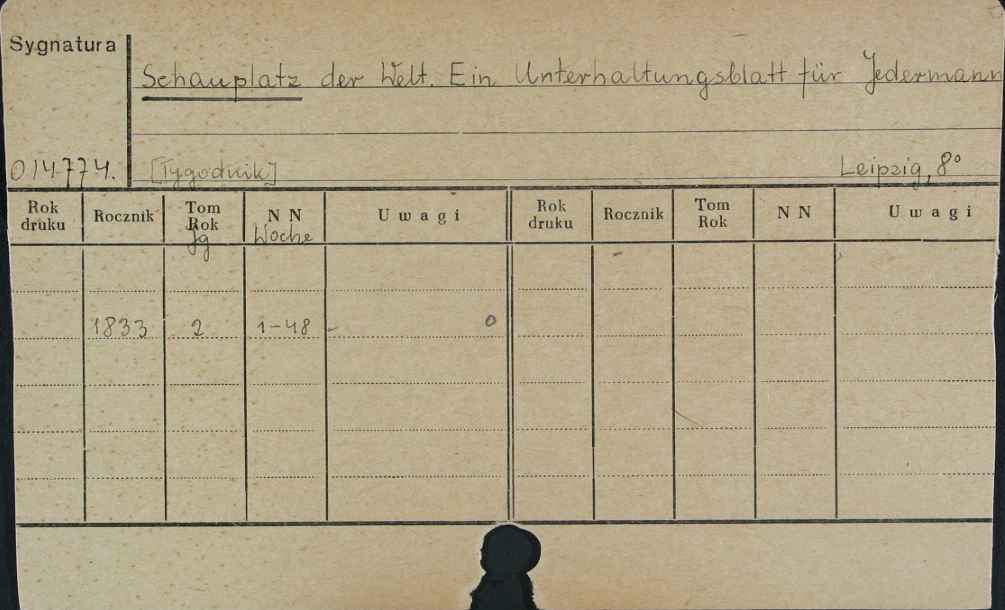 Sygnatura
Schauplatz der Welt. Ein Unterhaltungsblatt für Jedermann
014774. [Tygodnik] Leipzig, 8°
Rok druku Rocznik Tom Rok Jg N N Woche Uwagi Rok druku Rocznik Tom Rok N N Uwagi
1833 2 1-48 - 0